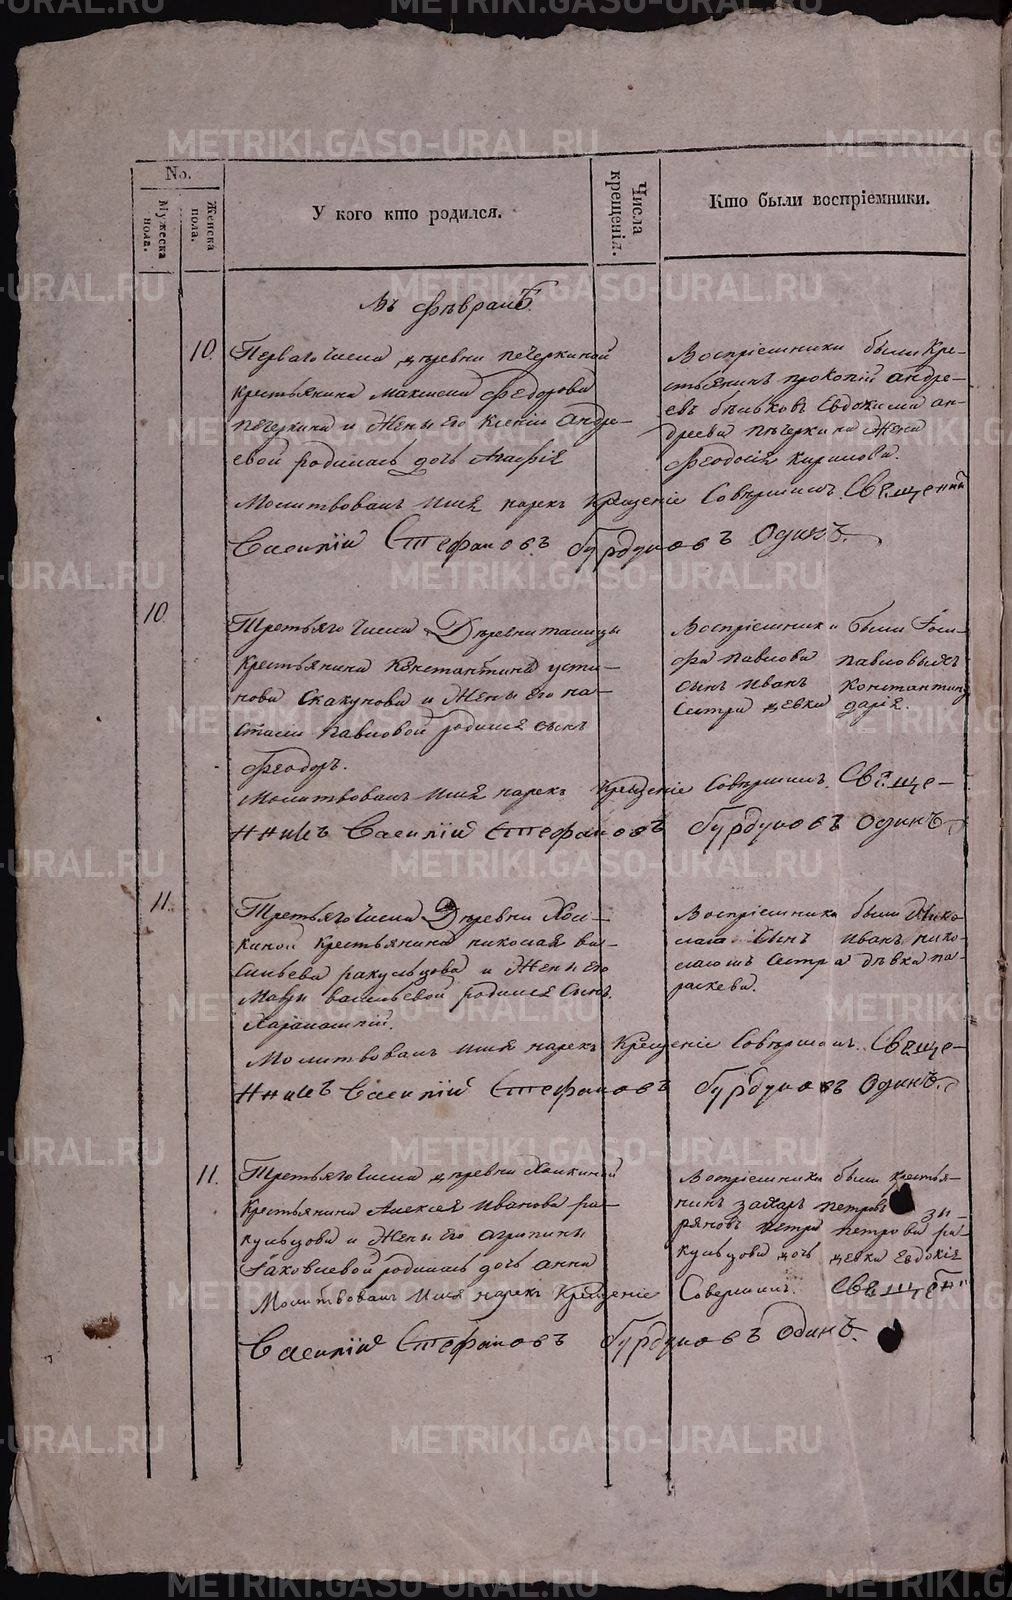 METRIKI.GASO-URAL.RU
No.
Мужеска пола.
Женска пола.
У кого кто родился.
Числа крещенія.
Кто были воспріемники.
Въ февралѣ
10. Перваго числа деревни печеркиной
крестьянина Максима Федорова
печеркина и жены его Ксении Андре-
евой родилась дочь Агафія
Воспріемники были кре-
стьянинъ прокопій андре-
евъ бѣльковъ Евдокима ан-
дреева пѣчеркина жена
Феодосія Кирилова.
Молитвовалъ имя нарекъ Крещеніе Совѣршилъ Священникъ
Василий Стефановъ бурдуковъ Одинъ.
10. Третьяго числа Дѣревни
крестьянина Константина усти-
нова Скакунова и жены его на-
стасьи Павловой родился сынъ
Феодоръ.
Воспріемники были Iоси-
фа павлова павловыхъ
сынъ иванъ константина
Сестра девка дарія.
Молитвовалъ имя нарекъ Крещеніе Совѣршилъ Свяще-
нникъ Василий Стефановъ бурдуковъ Одинъ
11. Третьяго числа Дѣревни Хол-
киной крестьянина николая ва-
сильева ракульцова и жены его
Мавры васильевой родился сынъ
Харлампій.
Воспріемники были Нико-
лая сынъ иванъ нико-
лаюшъ сестра дѣвка па-
раскева.
Молитвовалъ имя нарекъ Крещеніе Совѣршилъ Свяще-
нникъ Василий Стефановъ бурдуковъ Одинъ.
11. Третьяго числа деревни Холкиной
крестьянина Алексея иванова ра-
кульцова и жены его агрипины
Iаковлевой родилась дочь анна
Воспріемники были крестья-
нинъ захаръ петровъ зы-
ряновъ петра петрова ра-
кульцова дочь девка Евдокія
Молитвовалъ имя нарекъ Крещеніе Совершилъ Священникъ
Василий Стефановъ бурдуковъ Одинъ.